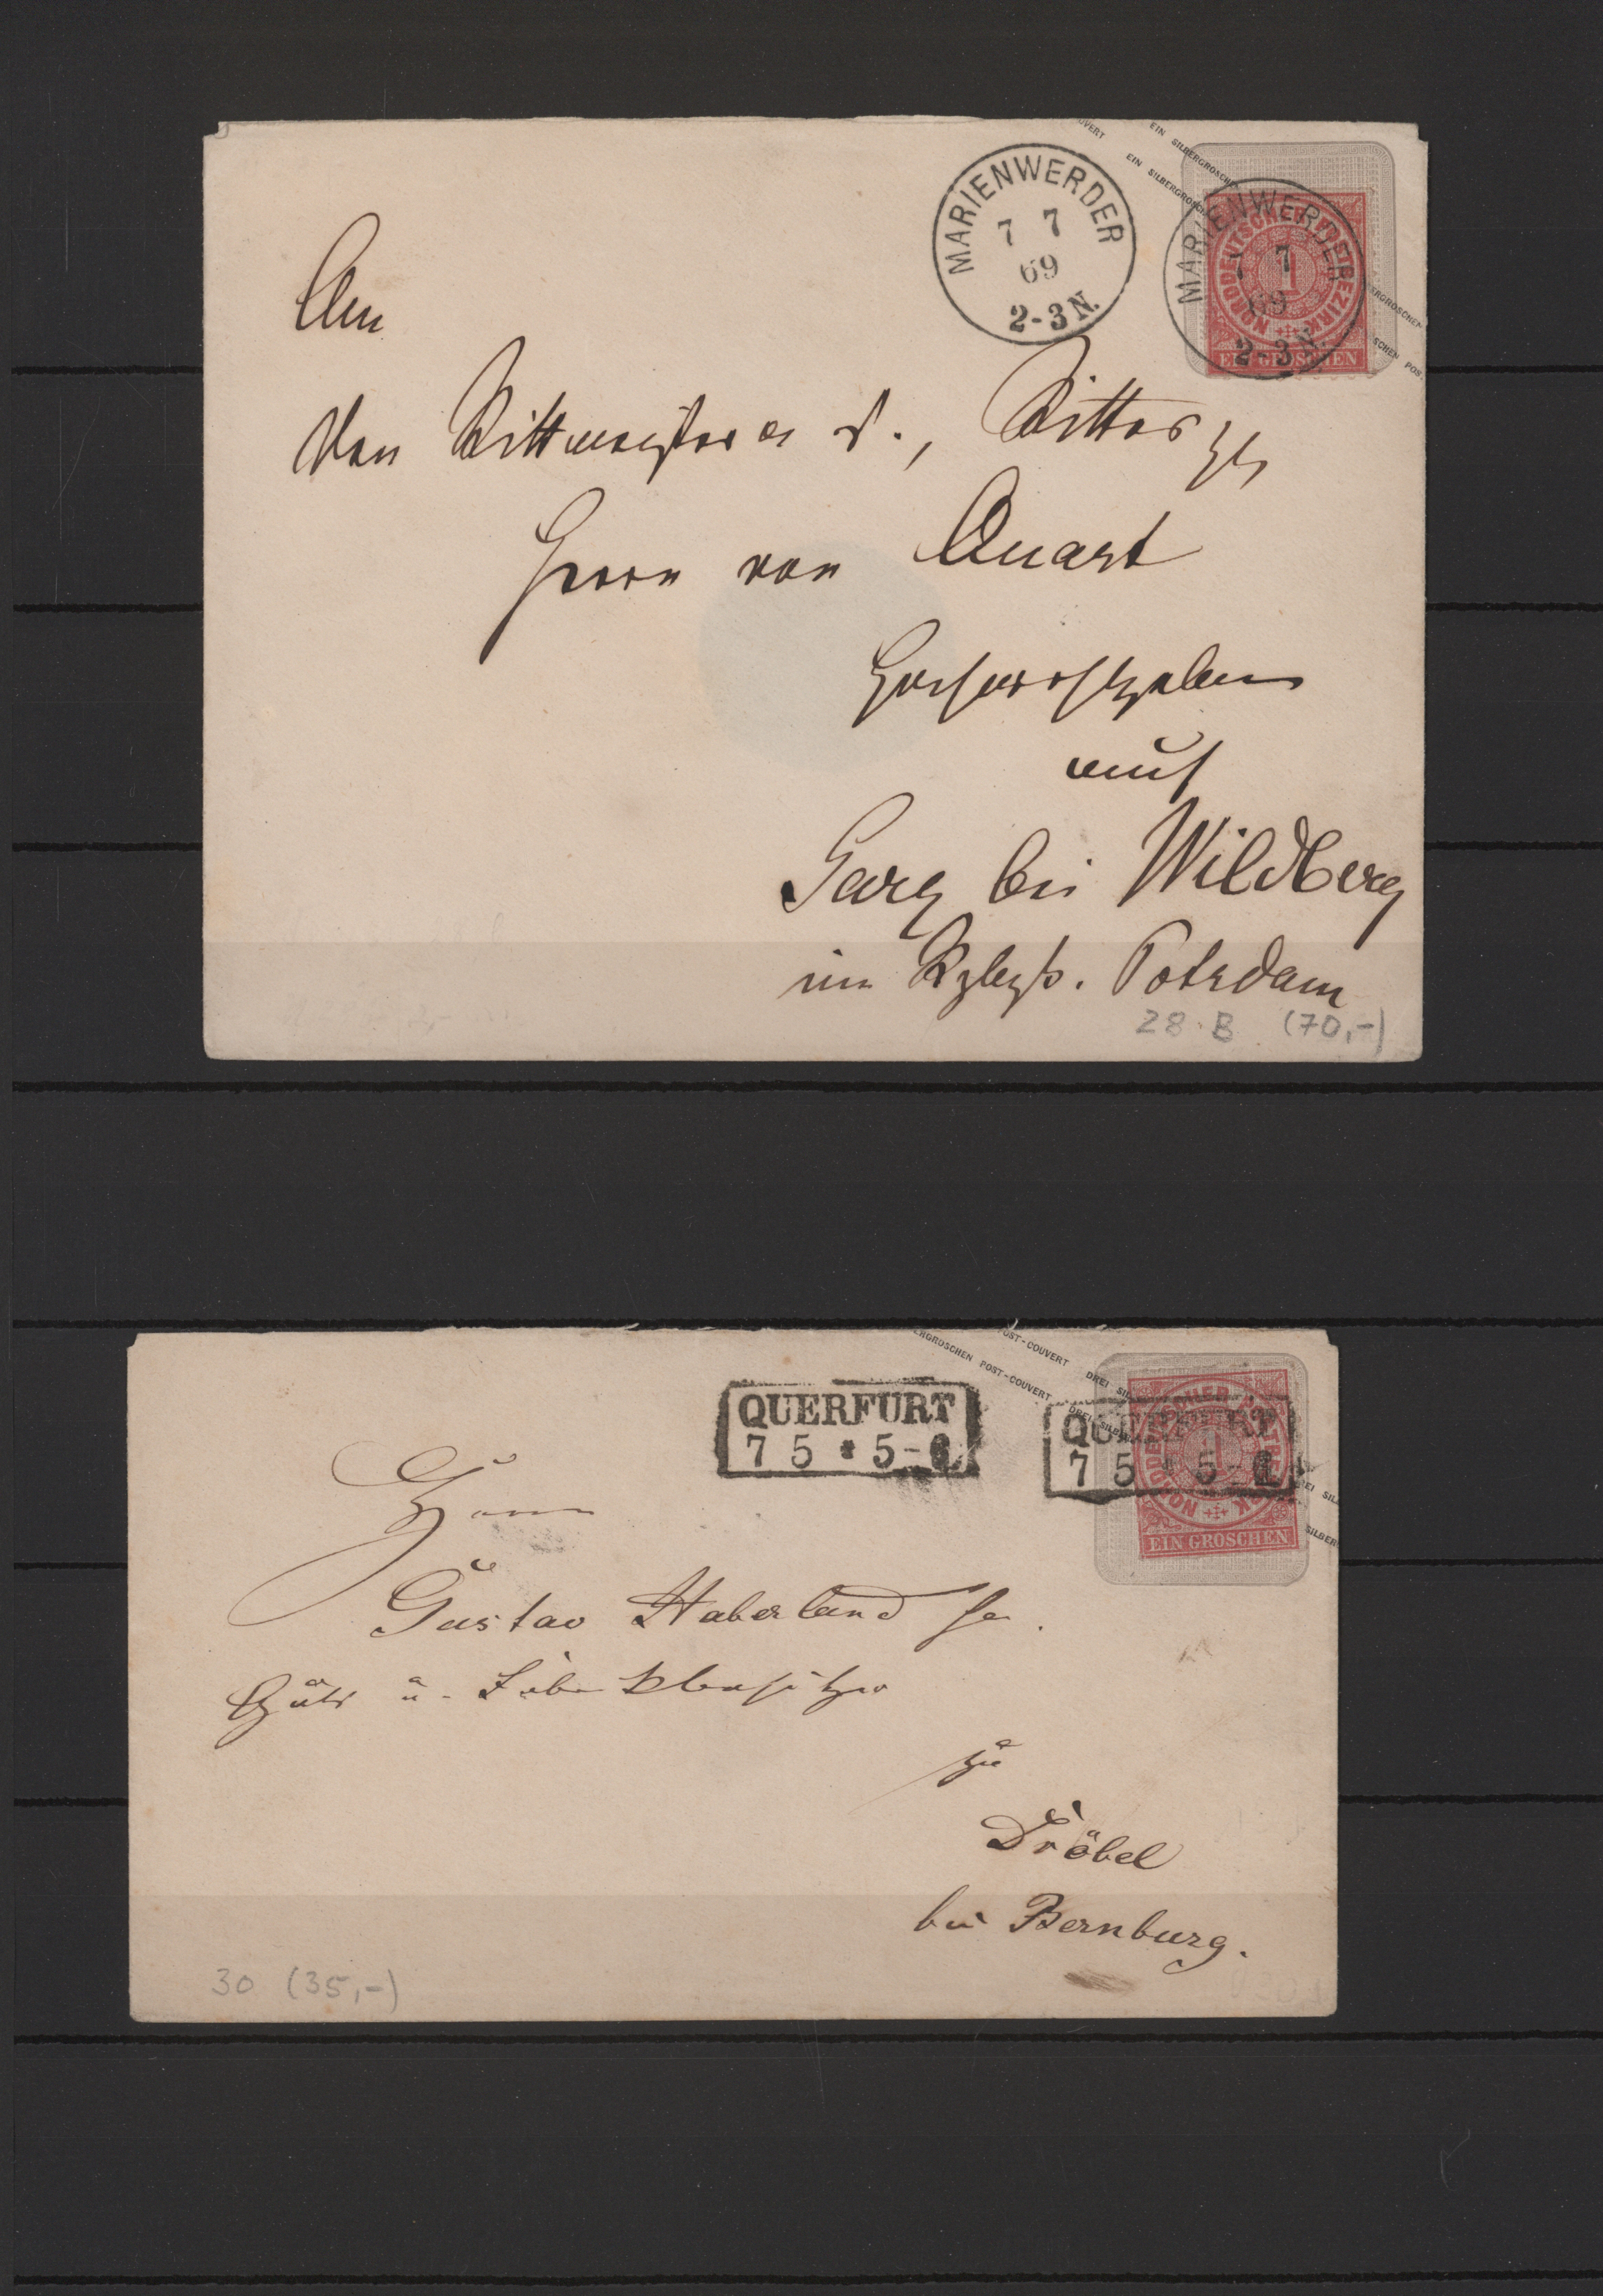 MARIENWERDER
7 7
69
2-3 N.
EIN SILBERGROSCHEN
EIN SILBERGROSCHEN
MARIENWERDER
7 7
69
2-3 N.
NORDDEUTSCHER POSTBEZIRK
1
EIN GROSCHEN
An
den Rittmeister a. D., Ritter
Herrn von Quast
Hochwohlgeboren
auf
Garz bei Wildberg
im Rgbzk. Potsdam
28 B (70,-)
QUERFURT
7 5 * 5-6
SILBERGROSCHEN POST-COUVERT DREI SILBER
POST-COUVERT DREI SIL
QUERFURT
7 5 * 5-6
NORDDEUTSCHER POSTBEZIRK
1
EIN GROSCHEN
Herrn
Gustav Haberland
Guts u. Fabrikbesitzer
zu
Dröbel
bei Bernburg.
30 (35,-)